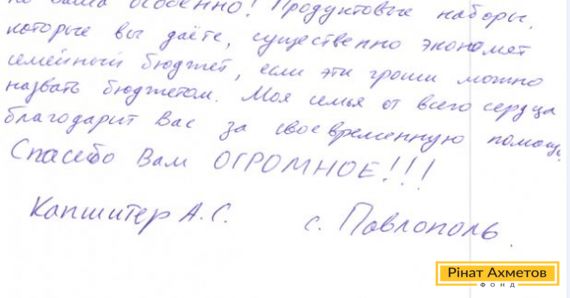 ваша особенно! Продуктовые наборы,
которые вы даёте, существенно экономят
семейный бюджет, если эти гроши можно
назвать бюджетом. Моя семья от всего сердца
благодарит Вас за своевременную помощь.
Спасибо Вам ОГРОМНОЕ!!!
Капшитер А.С. с. Павлополь.
Рінат Ахметов
ФОНД